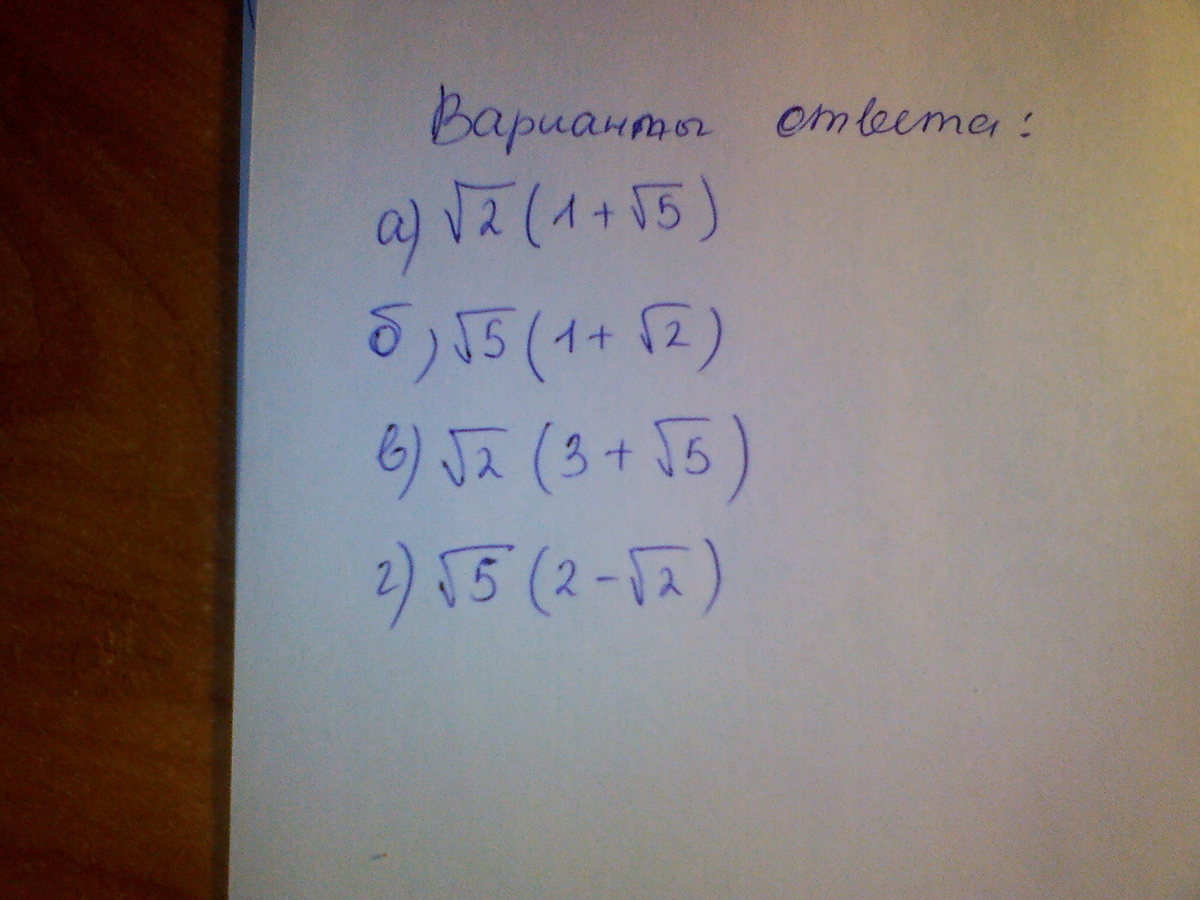 Варианты ответа:
а) √2 (1 + √5)
б) √5 (1 + √2)
в) √2 (3 + √5)
г) √5 (2 - √2)